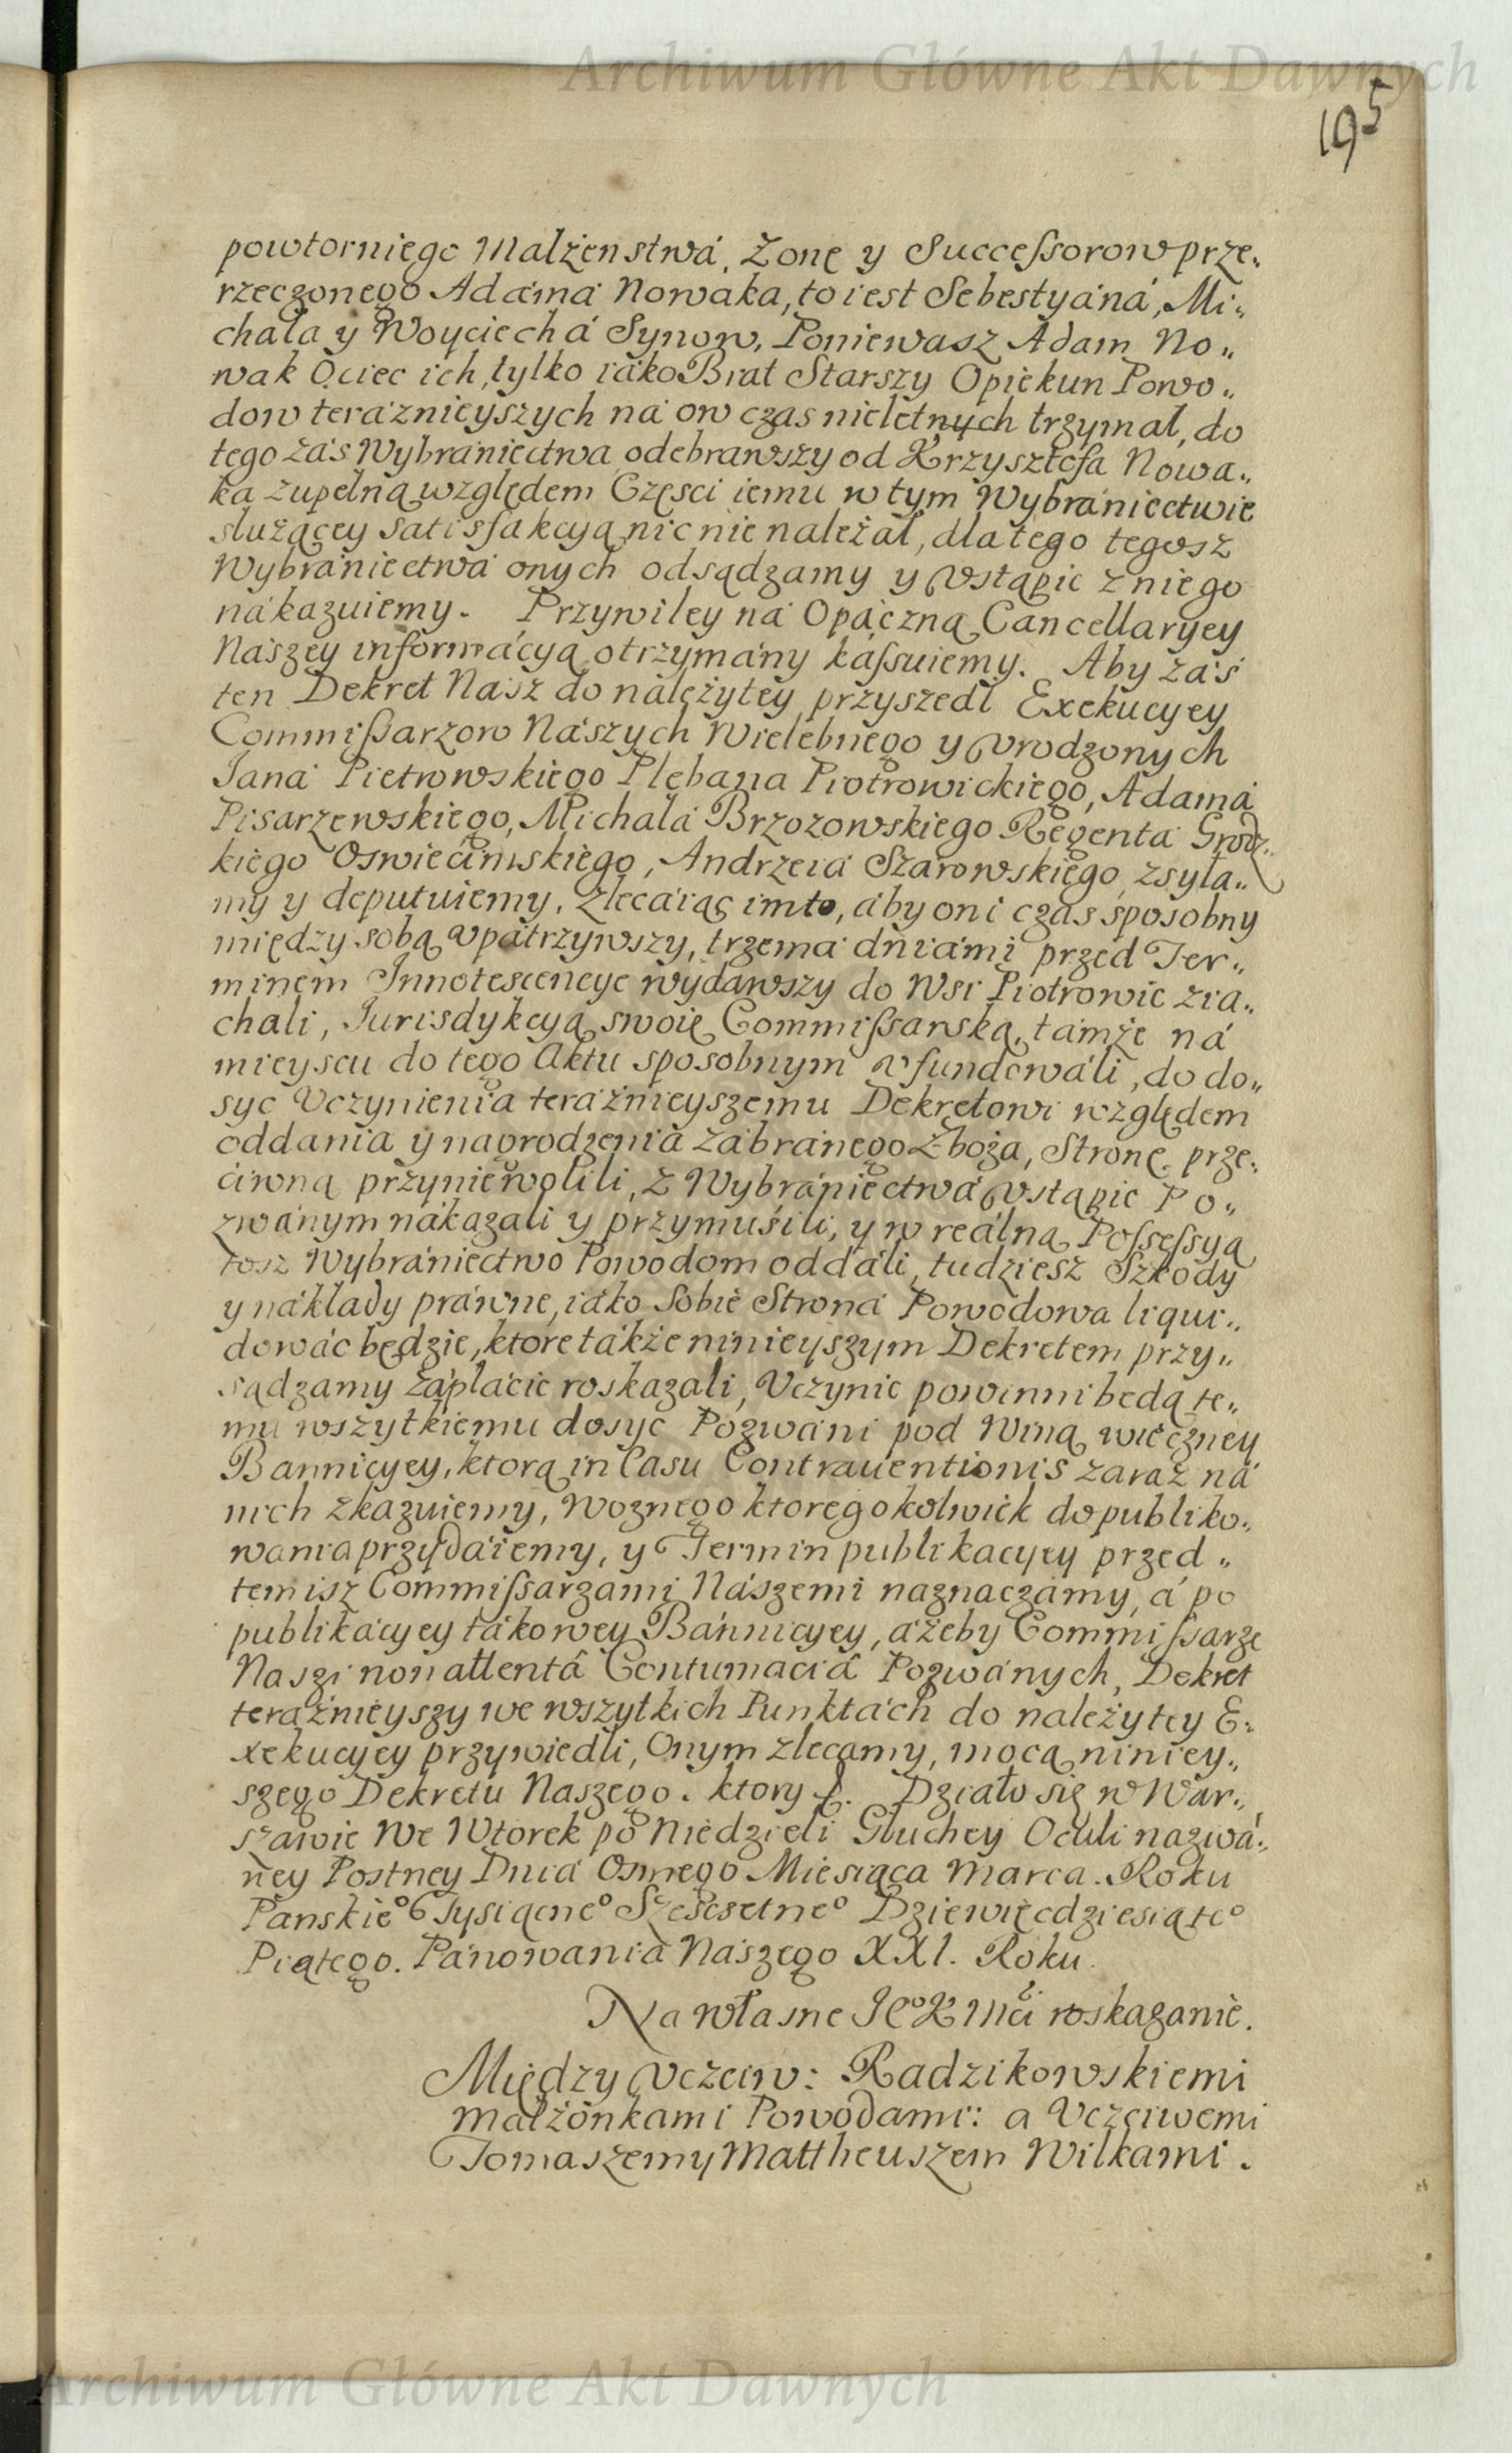 Archiwum Główne Akt Dawnych
195
powtorniego Malżenstwá, Żonę y Successorow prze„
rzeczonego Adámá Nowaka, to iest Sebestyáná, Mi„
chałá y Woyciechá Synow, Poniewasz Adam No„
wak Ociec ich, tylko iáko Brat Starszy Opiekun Powo„
dow teráznieyszych ná on czas nieletnych trzymał, do
tego záś Wybránictwa odebrawszy od Krzysztofa Nowa„
ka zupełną względem Częsci iemu w tym Wybránietwie
służącey satisfakcyą nic nie należał, dlatego tegosz
Wybránietwá onych odsądzamy y vstąpic z niego
nákazuiemy. Przywiley ná Opáczną Cancellaryey
Nászey informácyą otrzymány kássuiemy. Aby záś
ten Dekret Nász do náleżytey przyszedł Exekucyey
Commissarzow Nászych Wielebnego y vrodzonych
Janá Pietrowskiego Plebana Piotrowickiego, Adamá
Pisarzewskiego, Michalá Brzozowskiego Regentá Grodz„
kiego Oswiecimskiego, Andrzeiá Szarowskiego, zsyła„
my y deputuiemy, zlecáiąc im to, áby oni czas sposobny
między sobą vpátrzywszy, trzemá dniámi przed Ter„
minem Innotescencye wydawszy do Wsi Piotrowic zia„
chali, Jurisdykcyą swoię Commissarską, támże ná
mieyscu do tego Aktu sposobnym vfundowáli, do do„
syc Vczynienia teráznieyszemu Dekretowi względem
oddania y nagrodzenia zábránego Zboża, Stronę prze„
ciwną przyniewolili, z Wybránietwá vstąpic Po„
zwánym nákazali y przymuśili, y w reálną Possessyą
tosz Wybrániectwo Powodom oddáli, tudziesz Szkody
y nákłady práwne, iáko sobie Stroná Powodowa liqui„
dowác będzie, ktore tákże ninieyszym Dekretem przy„
sądzamy zápłácic roskazali, Vczynic powinni będą te„
mu wszytkiemu dosyc Pozwáni pod Winą wieczney
Bannicyey, ktorą in Casu Contrauentionis zaraz ná
nich zkazuiemy, Woznego ktoregokolwiek do publiko„
wania przydáiemy, y Termin publikacyey przed„
temisz Commissarzami Nászemi naznaczámy, á po
publikácyey tákowey Bánnicyey, áżeby Commissarze
Naszi non attentâ Contumaciâ Pozwánych, Dekret
teráżnieyszy we wszytkich Punktách do należytey E„
xekucyey przywiedli, Onym zlecamy, mocą niniey„
szego Dekretu Naszego. ktory &. Działo się w War„
száwie We Wtorek po Niedzieli Głuchey Oculi nazwá„
ney Postney Dniá Osmego Miesiąca Marca. Roku
Pańskieº Tysiącneº Szescsetneº Dziewięcdziesiąteº
Piątego. Pánowania Nászego XXI. Roku.
Na własne Jeº K Mći roskazanie.
Między Vczciw: Radzikowskiemi
małżonkami Powodami: a Vczciwemi
Tomaszem y Mattheuszem Wilkami.
Archiwum Główne Akt Dawnych